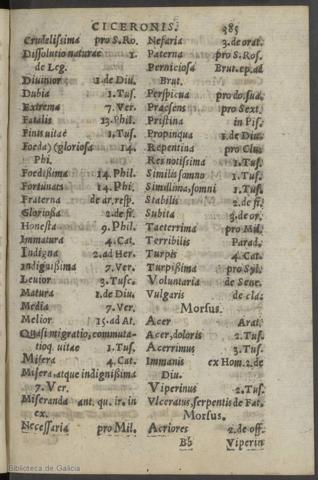 CICERONIS. 385
Crudelissima pro S. Ro.
Dissolutio naturae 1.
de Leg.
Diuinior 1. de Diu.
Dubia 1. Tus.
Extrema 7. Ver.
Fatalis 13. Phil.
Finis uitae 1. Tus.
Foeda) (gloriosa 14.
Phi.
Foedißima 14. Phil.
Fortunatis 14. Phi.
Fraterna de ar. resp.
Glorioßa 2. de fi.
Honesta 9. Phil.
Immatura 4. Cat.
Indigna 2. ad Her.
Indignißima 7. Ver.
Leuior 3. Tusc.
Matura 1. de Diu.
Media 7. Ver.
Melior 15. ad At.
Quasi migratio, commuta-
tioq. uitae 1. Tus.
Misera 4. Cat.
Misera, atque indignißima
7. Ver.
Miseranda ant. qu. ir. in
ex.
Necessaria pro Mil.
Nefaria 3. de orat.
Paterna pro S. Ros.
Perniciosa Brut. ep. ad
Brut.
Perspicua pro do. sua.
Praesens pro Sext.
Pristina in Pis.
Propinqua 1. de Diu.
Repentina pro Clu.
Res notissima 1. Tus.
Similis somno 1. Tus.
Simillima, somni 1. Tus.
Stabilis 2. de fi.
Subita 3. de or.
Taeterrima pro Mil.
Terribilis Parad.
Turpis 4. Cat.
Turpißima pro Syl.
Voluntaria de Sene.
Vulgaris de cla:
Morsus.
Acer Arat.
Acer, doloris 2. Tus.
Acerrimus 3. Tus.
Immanis ex Hom. 2. de
Diu.
Viperinus 2. Tus.
Vlceratus, serpentis de Fat.
Morsus.
Acriores 2. de off.
Bb Viperin
Biblioteca de Galicia